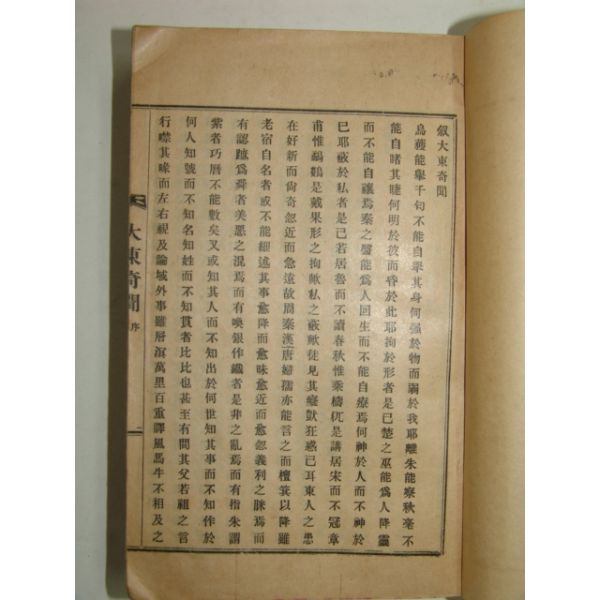 叙大東奇聞
烏獲能擧千匀不能自擧其身何强於物而弱於我耶離朱能察秋毫不
能自睹其睫何明於彼而昏於此耶拘於形者是已楚之巫能爲人降靈
而不能自禳焉秦之醫能爲人回生而不能自療焉何神於人而不神於
已耶蔽於私者是已若居魯而不讀春秋惟乘檮杌是講居宋而不冠章
甫惟鷸是戴果形之拘歟私之蔽歟徒見其癡獃狂惑已耳東人之患
在好新而尙奇忽近而急遠故周秦漢唐婦孺亦能言之而檀箕以降雖
老宿自名者或不能細述其事愈降而愈昧愈近而愈忽義利之眯焉而
有認蹠爲舜者美惡之混焉而有喚銀作鐵者是非之亂焉而有指朱謂
紫者巧曆不能數矣又或知其人而不知出於何世知其事而不知作於
何人知號而不知名知姓而不知貫者比比也甚至有問其父若祖之言
行噤其喙而左右視及論域外事雖層溟萬里百重譯風馬牛不相及之
大東奇聞 序 一